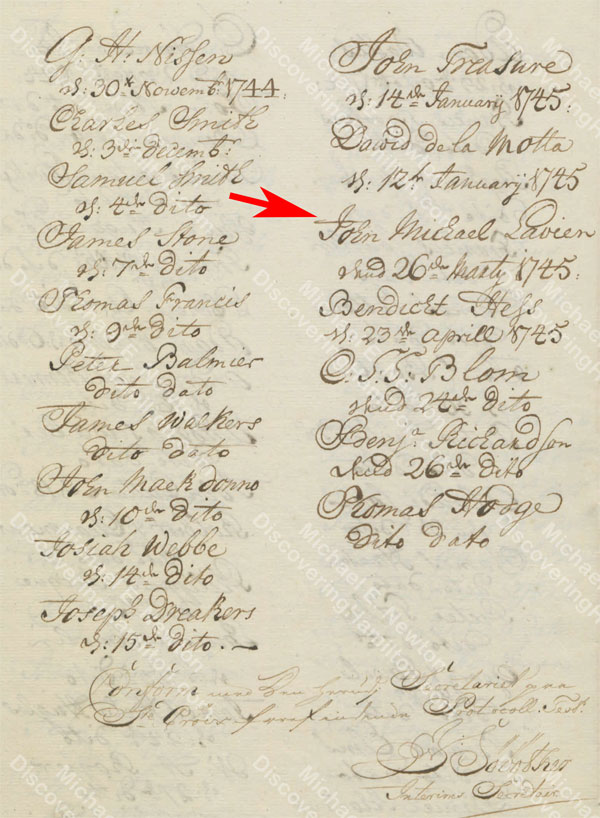 G: H: Nissen
d: 30te Novemb: 1744.
Charles Smith
d: 3de decemb:
Samuel Smith
d: 4de dito
James Stone
d: 7de dito
Thomas Francis
d: 9de dito
Peter Balmier
dito dato
James Walkers
dito dato
John Mackdonno
d: 10de dito
Josiah Webbe
d: 14de dito
Joseph Dreakers
d: 15de dito.
John Treasure
d: 14de January 1745.
David de la Motta
d: 12te January: 1745
John Michael Lavien
26de Marty 1745.
Bendicht Hess
d: 23de aprill 1745
C: J. T: Blom
24de dito
Benj: Richardson
26de dito
Thomas Hodge
dito dato
Conform Secretariets
St: Croix Protocoll: Test:
Interims
Michael E. Newton
DiscoveringHamilton